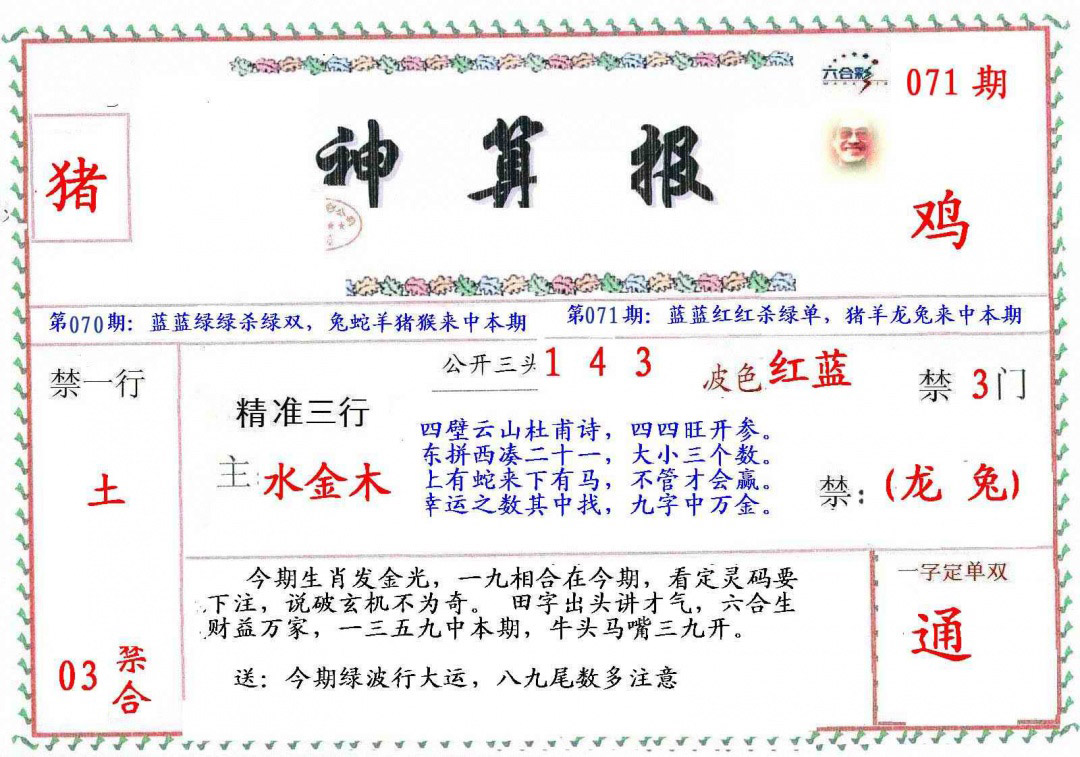 六合彩
071期
猪
神算报
鸡
第070期：蓝蓝绿绿杀绿双，兔蛇羊猪猴来中本期
第071期：蓝蓝红红杀绿单，猪羊龙兔来中本期
禁一行
土
03
禁合
精准三行
主：水金木
公开三头 1 4 3
波色 红蓝
四壁云山杜甫诗，四四旺开参。
东拼西凑二十一，大小三个数。
上有蛇来下有马，不管才会赢。
幸运之数其中找，九字中万金。
禁3门
禁：(龙 兔)
今期生肖发金光，一九相合在今期，看定灵码要
下注，说破玄机不为奇。田字出头讲才气，六合生
财益万家，一三五九中本期，牛头马嘴三九开。
送：今期绿波行大运，八九尾数多注意
一字定单双
通